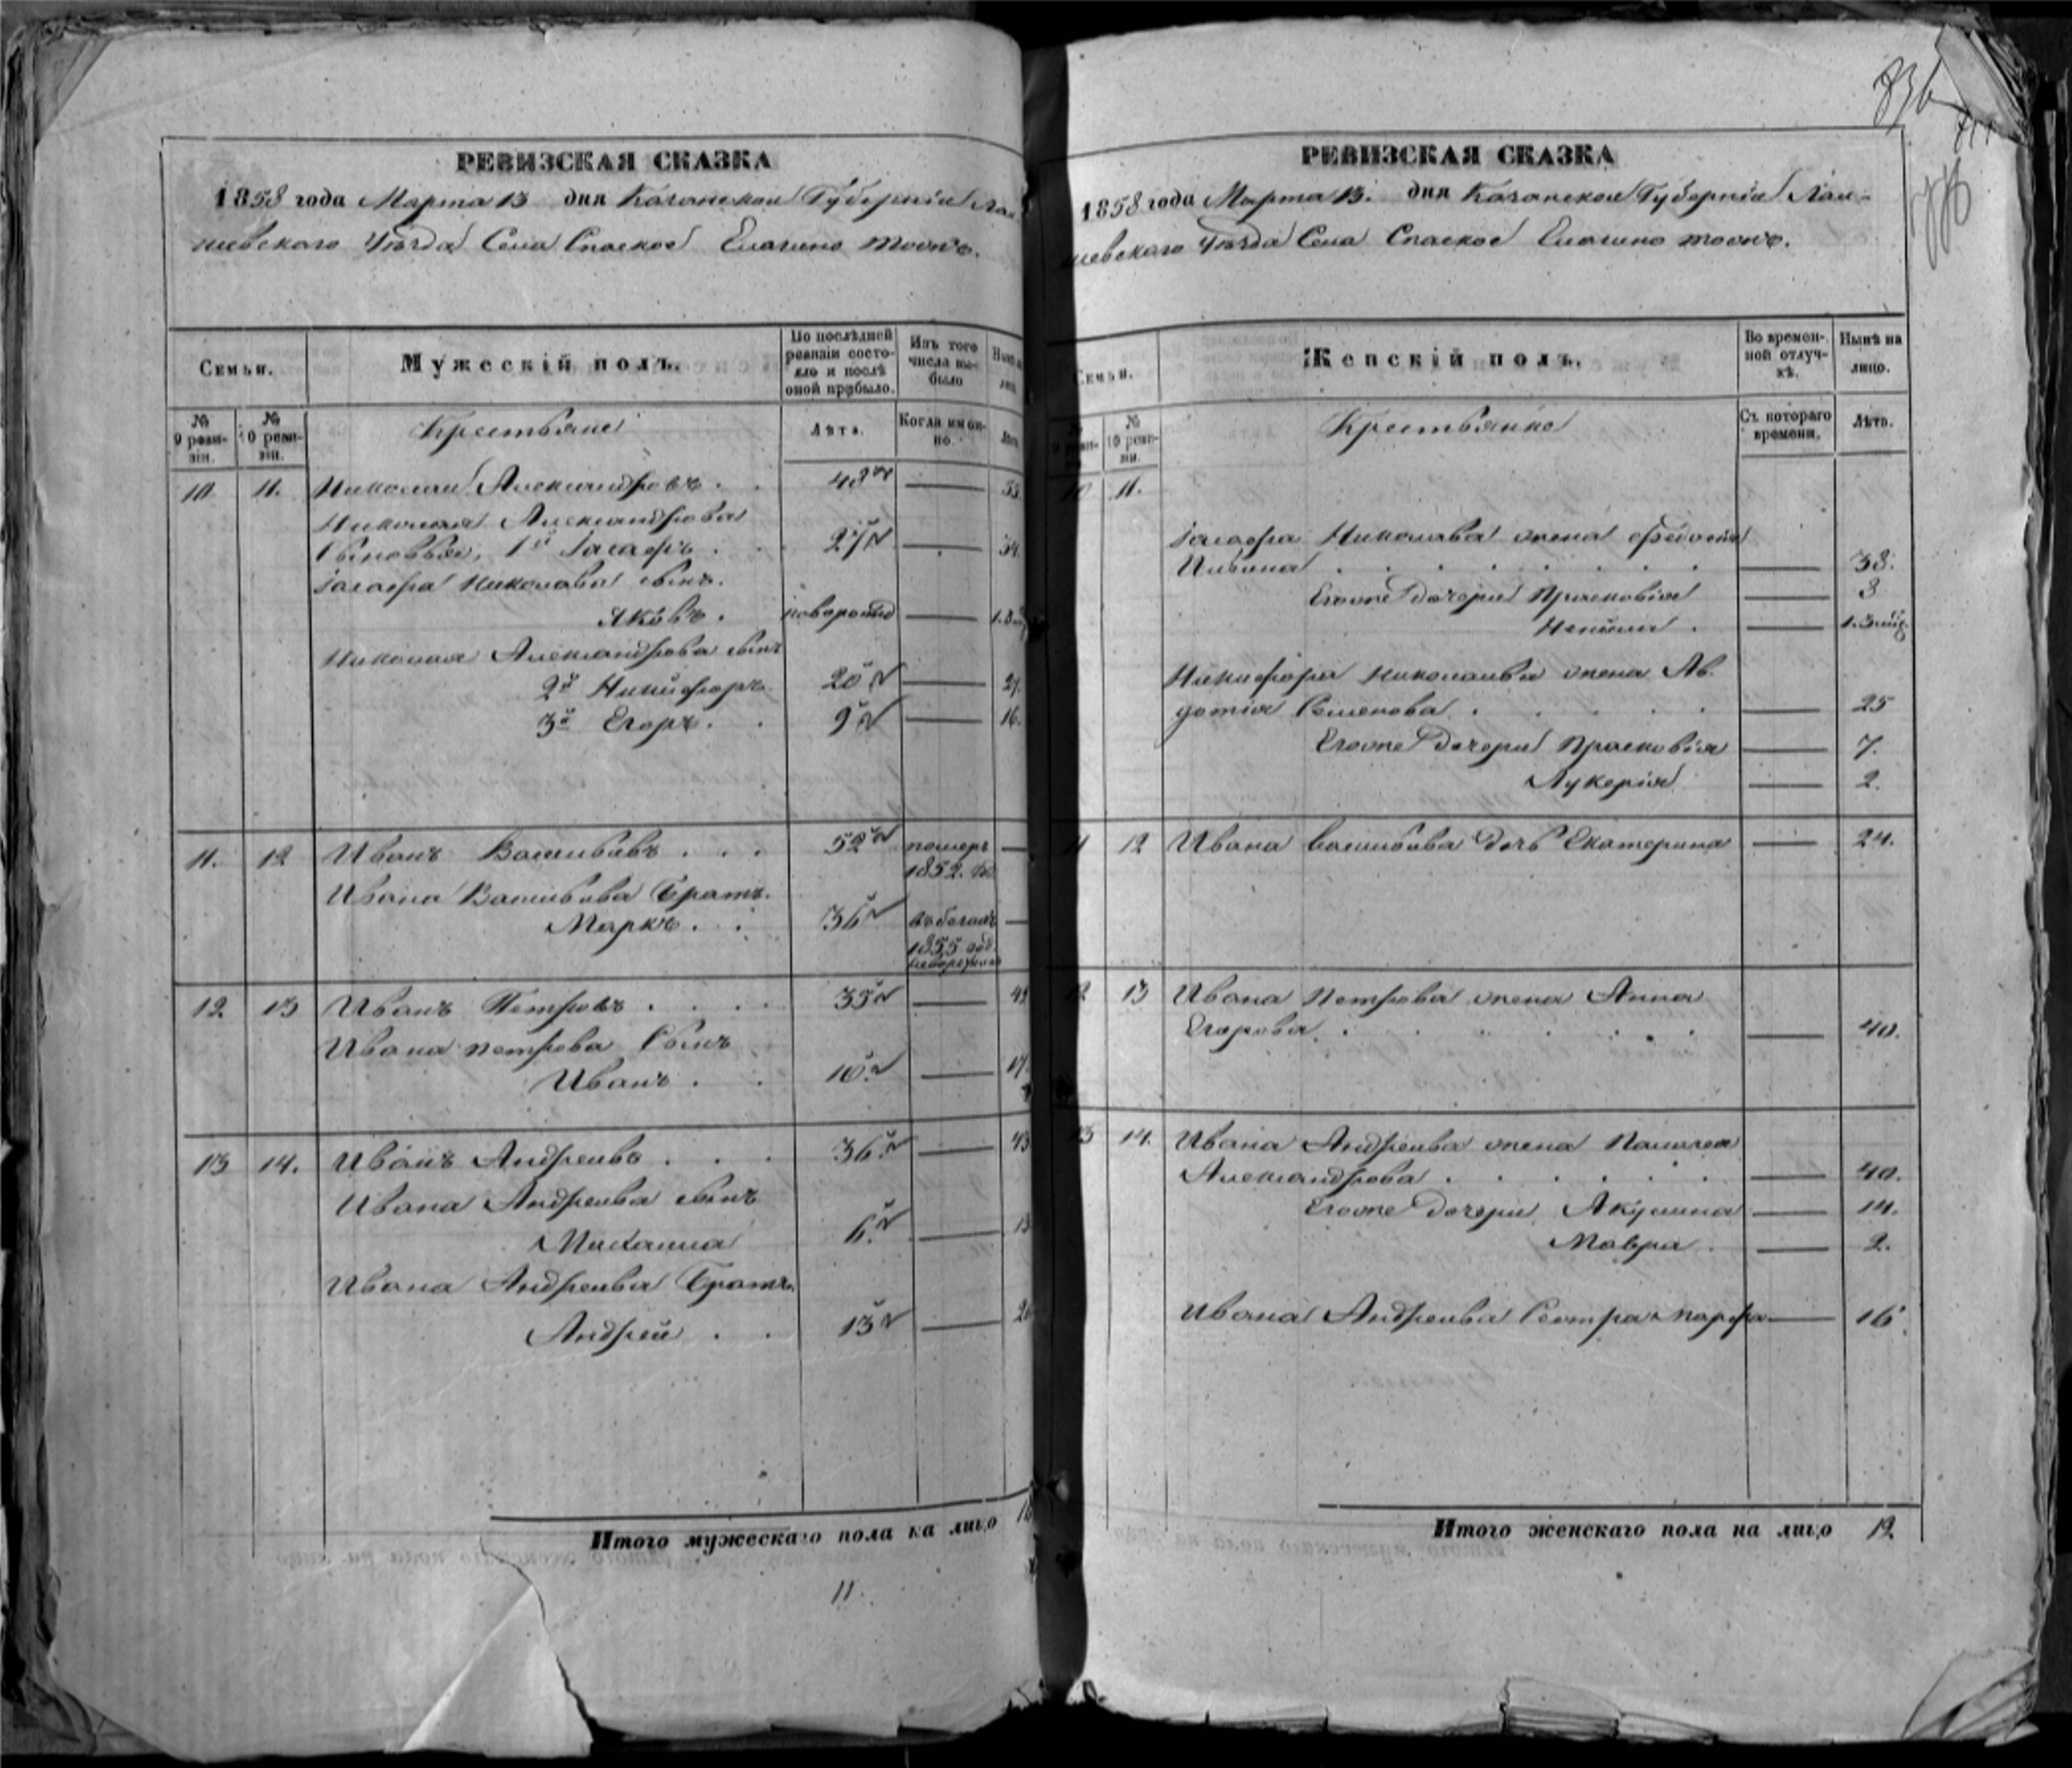 РЕВИЗСКАЯ СКАЗКА
1858 года Марта 13 дня Казанской Губерніи Лаи-
шевскаго Уѣзда Села Спаское Елагино тожъ.
Семьи.
Мужескій полъ.
По послѣдней ревизіи состо-
яло и послѣ
оной прибыло.
Изъ того
числа вы-
было
№
9 реви-
зіи.
№
10 реви-
зіи.
Крестьяне
Лѣта.
Когда имен-
но.
10 11. Николай Александровъ . . 48 — 55
Николая Александрова
Сыновья, 1й Захаръ . . 27 — 34.
Николаева сынъ.
Яковъ . новорожд —
Николая Александрова сынъ
2й Никифоръ. 20 — 27.
3й Егоръ . . 9 — 16.
11. 12 Иванъ Васильевъ . . . 52 померъ —
1852.
Ивана Васильева Братъ.
Маркъ . . 36 въ бегахъ —
1855
12 13 Иванъ Петровъ . . . . 35 — 42
Ивана Петрова Сынъ
Иванъ . . 10 — 17.
13 14. Иванъ Андреевъ . . . 36 — 43
Ивана Андреева сынъ
Михаила 6 — 13
Ивана Андреева Братъ.
Андрей . . 13 — 20
Итого мужескаго пола на лицо
11.
РЕВИЗСКАЯ СКАЗКА
1858 года Марта 13. дня Казанской Губерніи Лаи-
шевскаго Уѣзда Села Спаское Елагино тожъ.
Семьи.
Женскій полъ.
Во времен-
ной отлуч-
кѣ.
Нынѣ на
лицо.
№
9 реви-
№
10 реви-
зіи.
Крестьянке
Съ котораго
времени.
Лѣта.
10 11.
Николаева жена
— 38.
Егожне дочери Прасковія — 3
—
Никифора Николаева жена Ав-
дотія Семенова . . . . . — 25
Егожне дочери Прасковія — 7.
Лукерія — 2.
11 12 Ивана Васильева дочь Екатерина — 24.
12 13 Ивана Петрова жена Анна
Егорова . . . . . . — 40.
13 14. Ивана Андреева жена Палагея
Александрова . . . . . . — 40.
Егожне дочери Акулина — 14.
Мавра . — 2.
Ивана Андреева Сестра Марфа — 16.
Итого женскаго пола на лицо 12